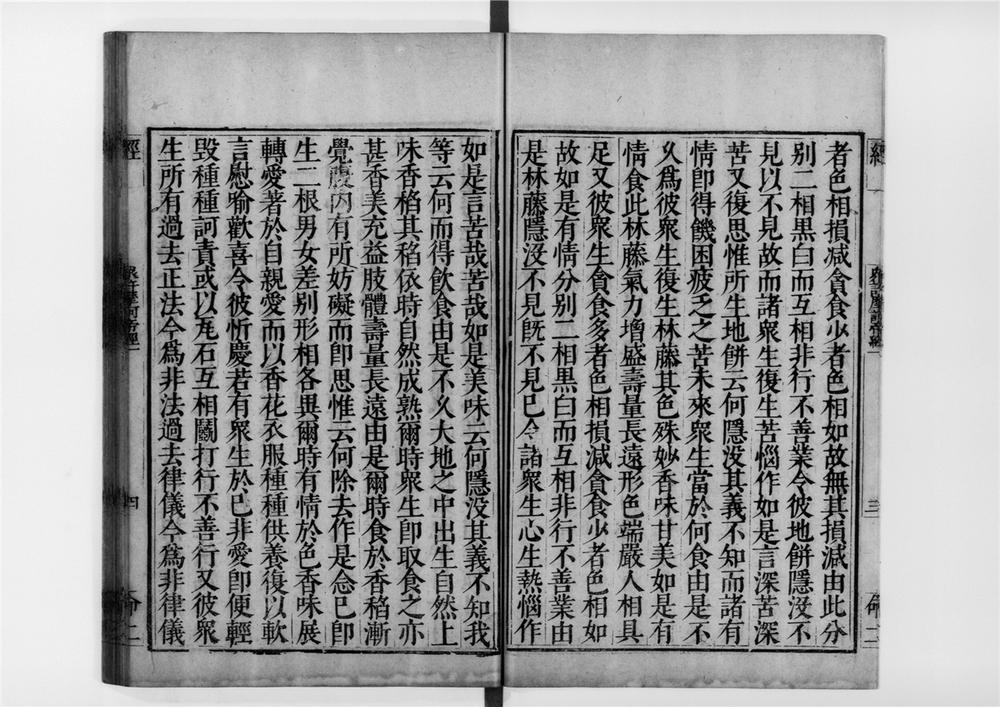 者色相損減貪食少者色相如故無其損減由此分
別二相黑白而互相非行不善業令彼地餅隱沒不
見以不見故而諸衆生復生苦惱作如是言深苦深
苦又復思惟所生地餅云何隱没其義不知而諸有
情卽得饑困疲乏之苦未來衆生當於何食由是不
久爲彼衆生復生林藤其色殊妙香味甘美如是有
情食此林藤氣力增盛壽量長遠形色端嚴人相具
足又彼衆生貪食多者色相損減貪食少者色相如
故如是有情分别二相黑白而互相非行不善業由
是林藤隱没不見旣不見已令諸衆生心生熱惱作
如是言苦哉苦哉如是美味云何隱没其義不知我
等云何而得飮食由是不久大地之中出生自然上
味香稻其稻依時自然成熟爾時衆生卽取食之亦
甚香美充益肢體壽量長遠由是爾時食於香稻漸
覺腹内有所妨礙而卽思惟云何除去作是念已卽
生二根男女差别形相各異爾時有情於色香味展
轉愛著於自親愛而以香花衣服種種供養復以軟
言慰喻歡喜令彼忻慶若有衆生於已非愛卽便輕
毀種種訶責或以瓦石互相鬭打行不善行又彼衆
生所有過去正法今爲非法過去律儀今爲非律儀
經
三
經
四
二